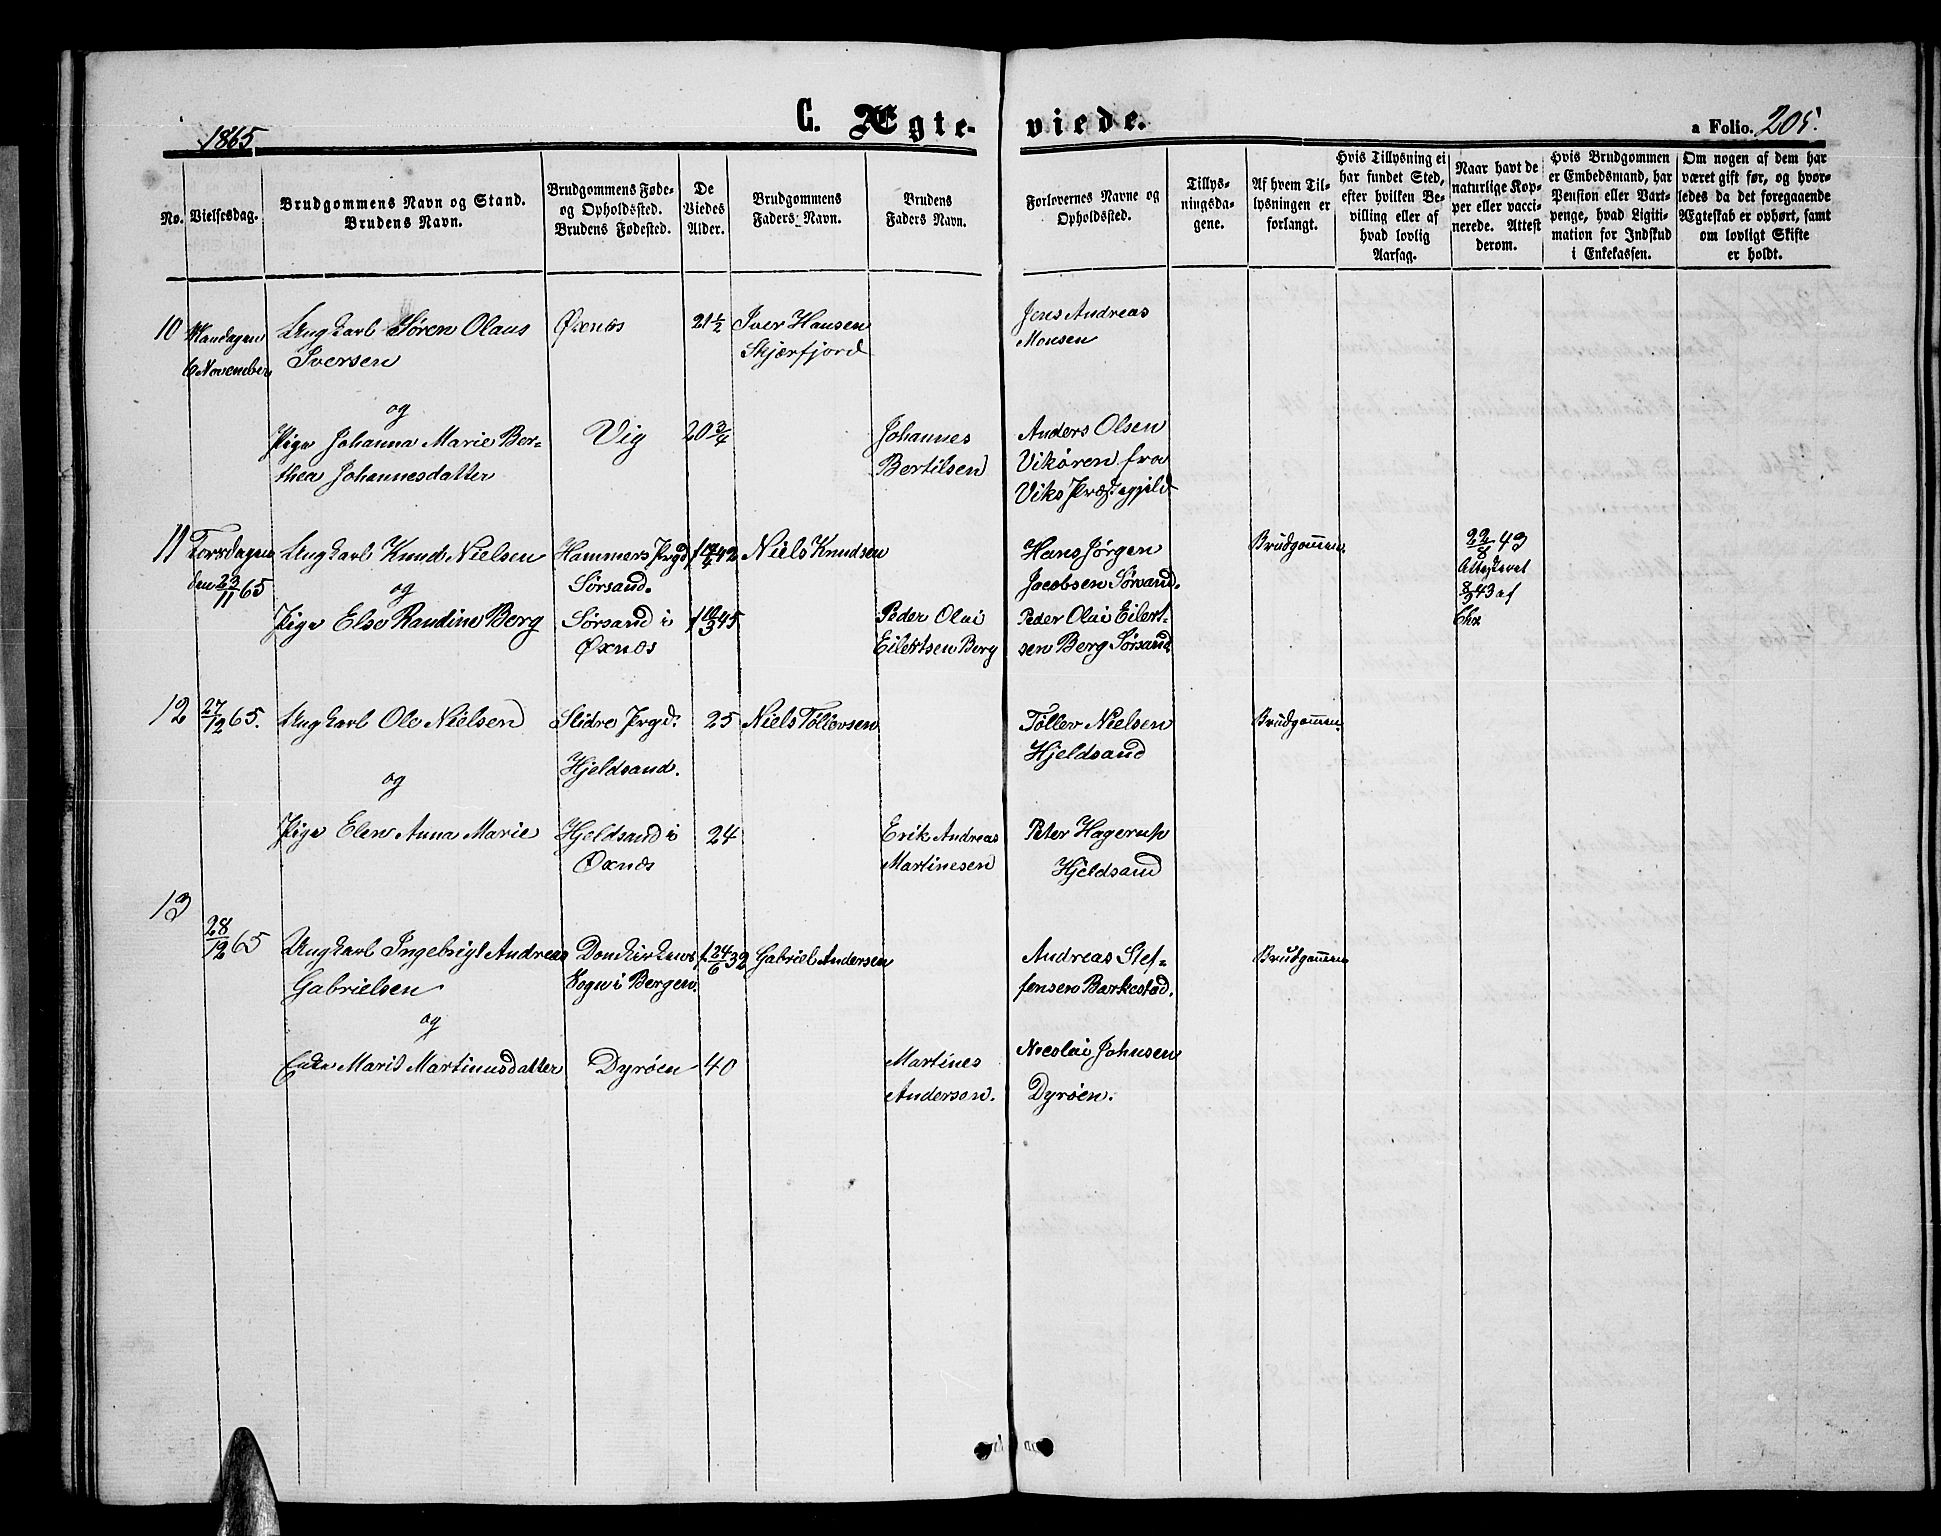 1865
C. Ægte-
viede.
a Folio. 205.
No.
Vielsesdag.
Brudgommens Navn og Stand.
Brudens Navn.
Brudgommens Føde-
og Opholdssted.
Brudens Fødested.
De
Viedes
Alder.
Brudgommens
Faders Navn.
Brudens
Faders Navn.
Forlovernes Navne og
Opholdssted.
Tillys-
ningsda-
gene.
Af hvem Til-
lysningen er
forlangt.
Hvis Tillysning ei
har fundet Sted,
efter hvilken Be-
villing eller af
hvad lovlig
Aarsag.
Naar havt de
naturlige Kop-
per eller vacci-
nerede. Attest
derom.
Hvis Brudgommen
er Embedsmand, har
Pension eller Vart-
penge, hvad Ligiti-
mation for Indskud
i Enkekassen.
Om nogen af dem har
været gift før, og hvor-
ledes da det foregaaende
Ægteskab er ophørt, samt
om lovligt Skifte
er holdt.
10
Mandagen
6 November
Ungkarl Søren Olaus
Iversen
og
Pige Johanna Marie Ber-
thea Johannesdatter
Øxnes
Vig
21 1/2
20 3/4
Iver Hansen
Skjærfjord
Johannes
Bertilsen
Jens Andreas
Monsen
Anders Olsen
Vikøren fra
Viks Præstegjeld
11
Torsdagen
den 23/11 65
Ungkarl Knud Nielsen
og
Pige Else Randine Berg
Hammers Prgd
Sørsand.
Sørsand i
Øxnes
Niels Knudsen
Peder Olai
Eilertsen Berg
Hans Jørgen
Jacobsen Sørsand.
Peder Olai Eilert-
sen Berg Sørsand
Brudgommen
22/8 43
12
27/12 65.
Ungkarl Ole Nielsen
og
Pige Elen Anna Marie
Slidre Prgd.
Hjeldsand.
Hjeldsand i
Øxnes
25
24
Niels Tollevsen
Erik Andreas
Martinesen
Tollev Nielsen
Hjeldsand
Peter Hagerup
Hjeldsand
Brudgommen
13
28/12 65
Ungkarl Ingebrigt Andreas
Gabrielsen
og
Enke Marit Martinusdatter
Domkirkens
Sogn i Bergen.
Dyrøen
f 24/6 32
40
Gabriel Andersen
Martines
Andersen.
Andreas Stef-
fensen Barkestad.
Nicolai Johnsen
Dyrøen.
Brudgommen